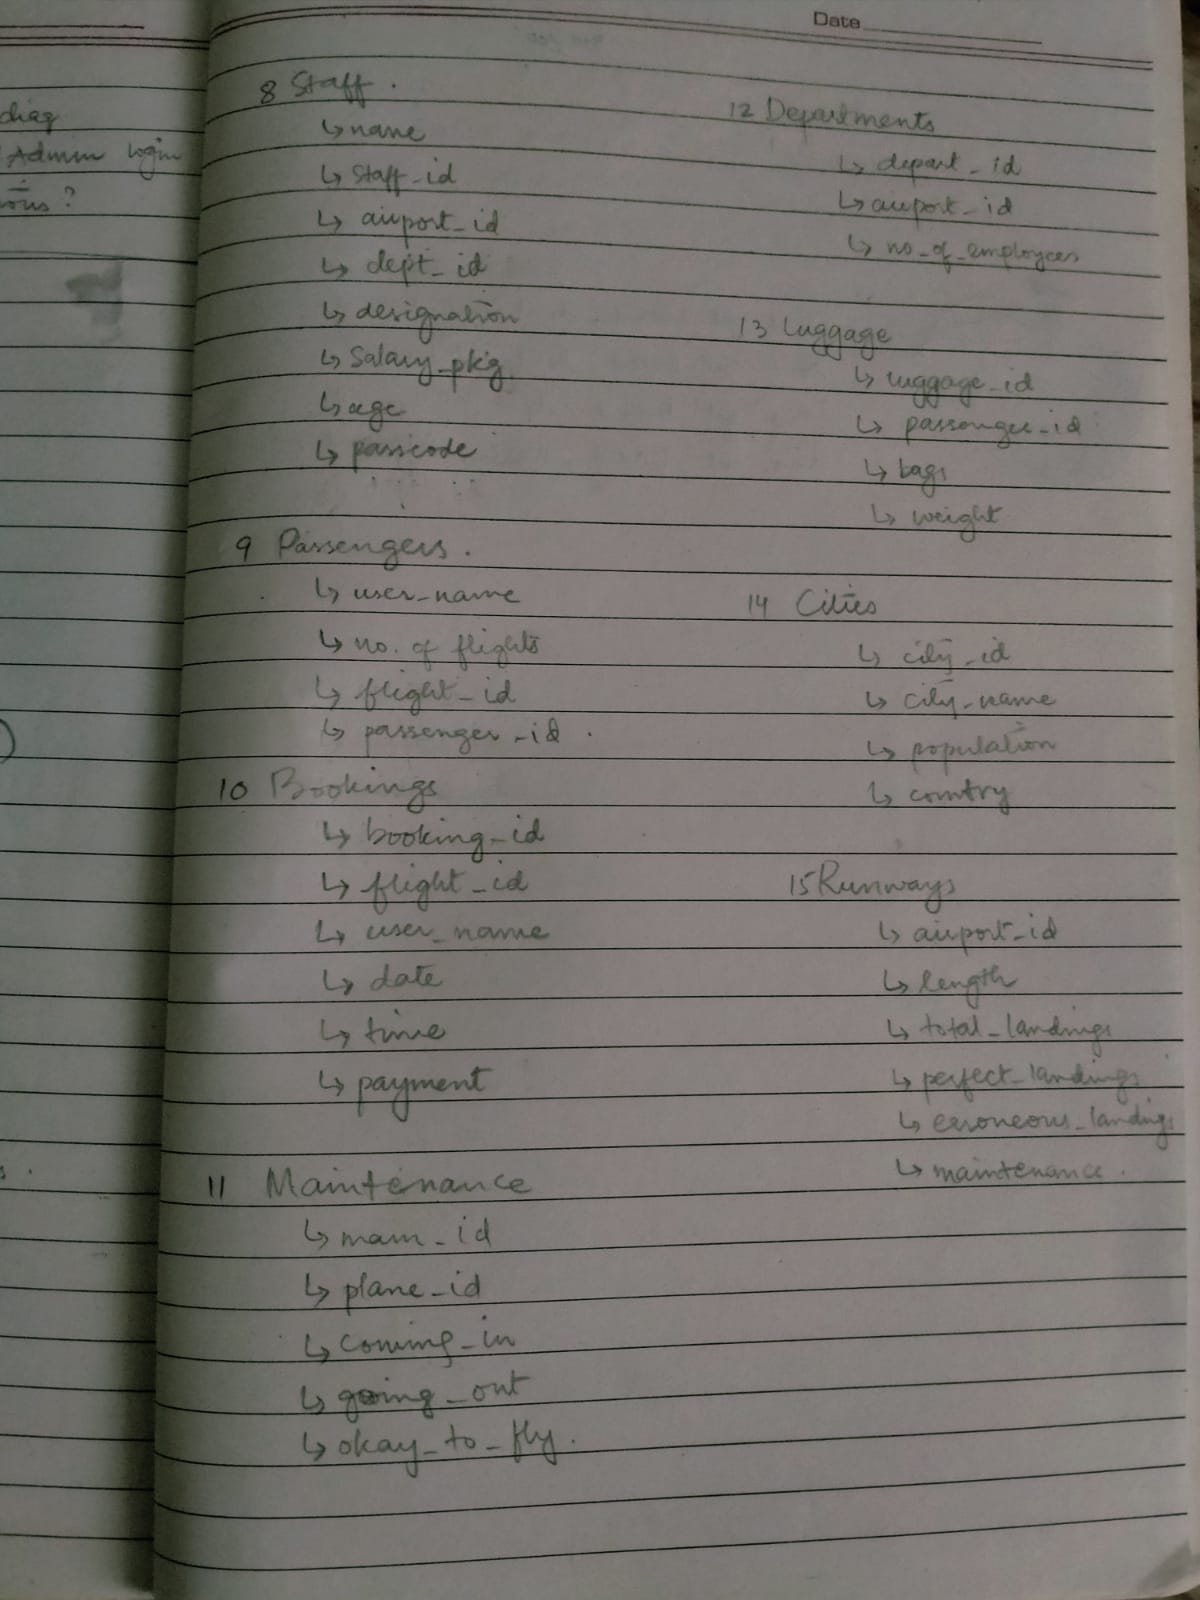 Date
diag
Admin login
8 Staff.
↳ name
↳ staff_id
↳ airport_id
↳ dept_id
↳ designation
↳ Salary_pkg
↳ age
↳ passcode
9 Passengers.
↳ user_name
↳ no. of flights
↳ flight_id
↳ passenger_id.
10 Bookings
↳ booking_id
↳ flight_id
↳ user_name
↳ date
↳ time
↳ payment
11 Maintenance
↳ main_id
↳ plane_id
↳ coming_in
↳ going_out
↳ okay_to_fly.
12 Departments
↳ depart_id
↳ airport_id
↳ no_of_employees
13 Luggage
↳ luggage_id
↳ passenger_id
↳ bags
↳ weight
14 Cities
↳ city_id
↳ city_name
↳ population
↳ country
15 Runways
↳ airport_id
↳ length
↳ total_landings
↳ perfect_landings
↳ erroneous_landings
↳ maintenance.